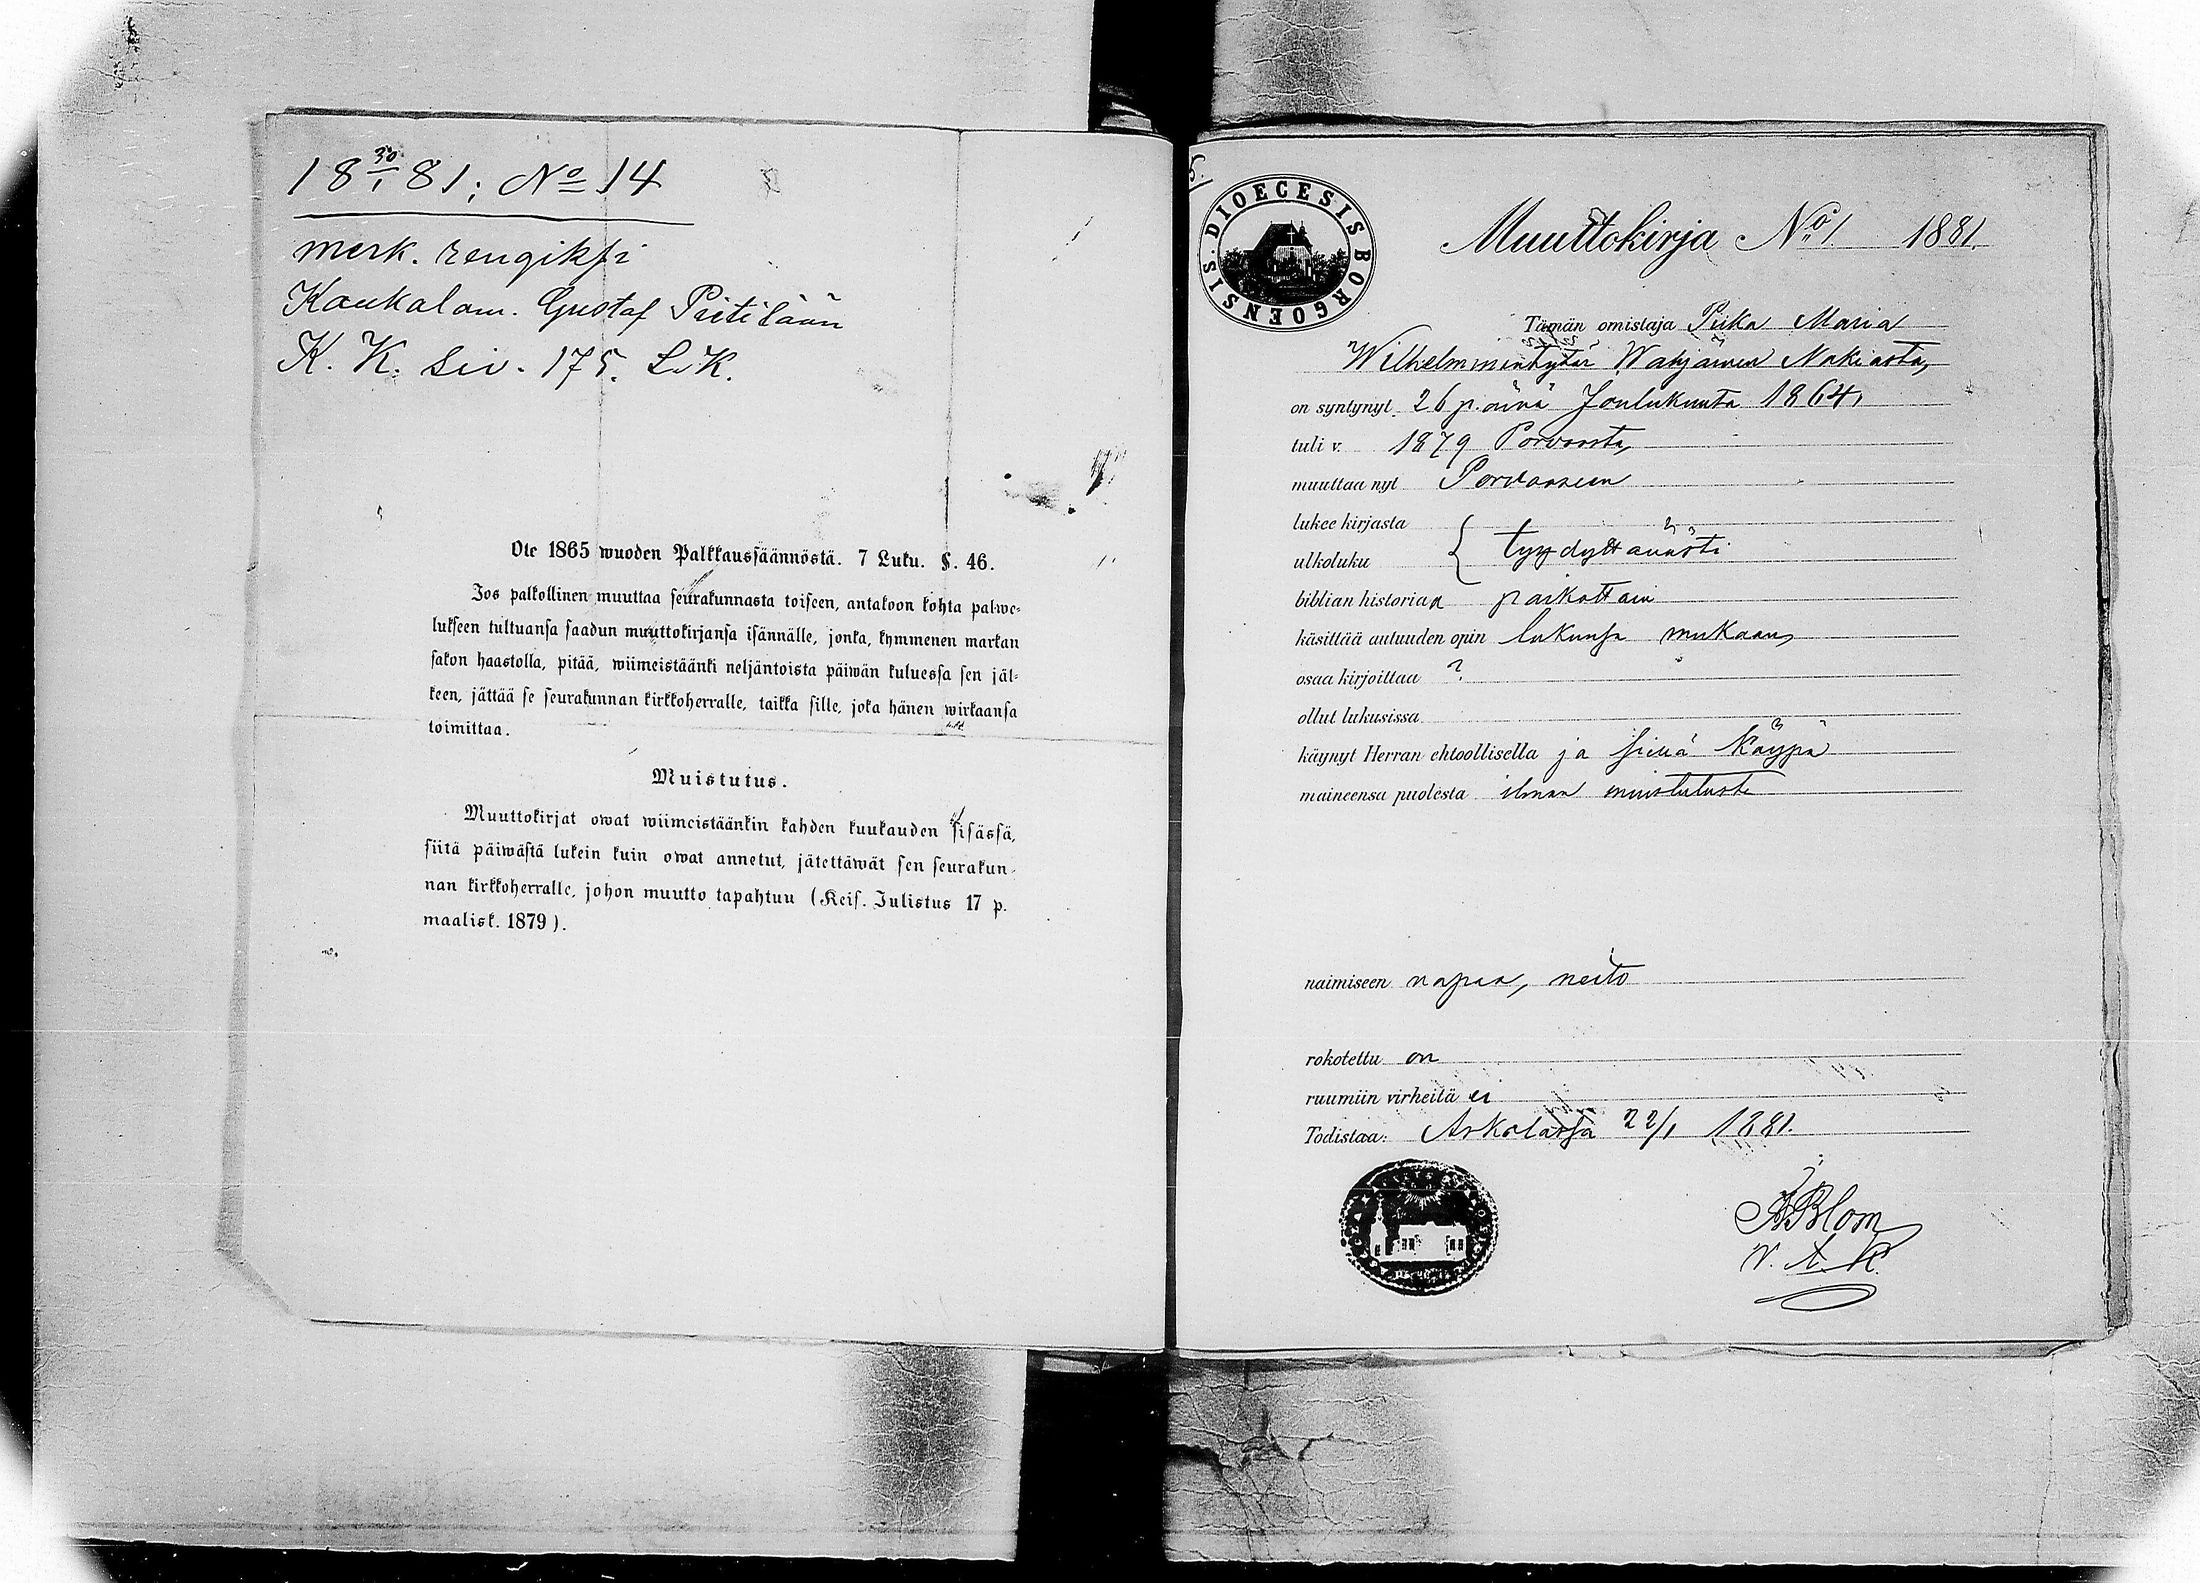 18 30/1 81; No 14
merk. rengiksi
Kaukalam. Gustaf Pietilään
K. K. siv. 175. L.K.
Ote 1865 wuoden Palkkaussäännöstä. 7 Luku. §. 46.
Jos palkollinen muuttaa seurakunnasta toiseen, antakoon kohta palwe-
lukseen tultuansa saadun muuttokirjansa isännälle, jonka, kymmenen markan
sakon haastolla, pitää, wiimeistäänki neljäntoista päiwän kuluessa sen jäl-
keen, jättää se seurakunnan kirkkoherralle, taikka sille, joka hänen wirkaansa
toimittaa.
Muistutus.
Muuttokirjat owat wiimeistäänkin kahden kuukauden sisässä,
siitä päiwästä lukein kuin owat annetut, jätettäwät sen seurakun-
nan kirkkoherralle, johon muutto tapahtuu (Keis. Julistus 17 p.
maalisk. 1879).
5.
DIOECESIS BORGOENSIS.
Muuttokirja No 1 1881
Tämän omistaja Piika Maria
Wilhelmmintytär Nakiasta,
on syntynyt 26 p. äivä Joulukuuta 1864,
tuli v. 1879 Porvoosta,
muuttaa nyt Porvooseen
lukee kirjasta
ulkoluku { tyydyttävästi
biblian historiaa paikottain
käsittää autuuden opin lukunsa mukaan,
osaa kirjoittaa ?
ollut lukusissa
käynyt Herran ehtoollisella ja siinä käypä
maineensa puolesta ilman muistutusta
naimiseen vapaa, neito
rokotettu on
ruumiin virheitä ei
Todistaa: Askolassa 22/1 1881.
A Blom
v. A. K.